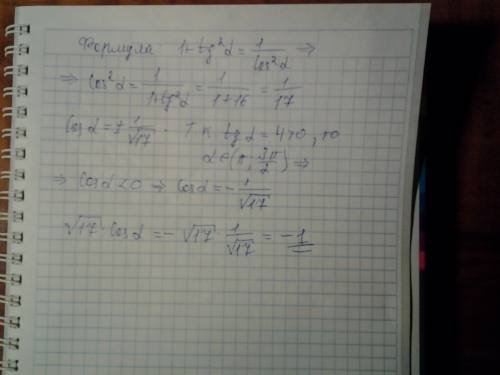 Формула 1+tg²α = 1/cos²α ⇒
⇒ cos²α = 1/(1+tg²α) = 1/(1+16) = 1/17
cosα = ± 1/√17 . Т к tg α = 4>0, то
α ∈ (π; 3π/2) ⇒
⇒ cosα < 0 ⇒ cosα = − 1/√17
√17 · cosα = − √17 · 1/√17 = −1